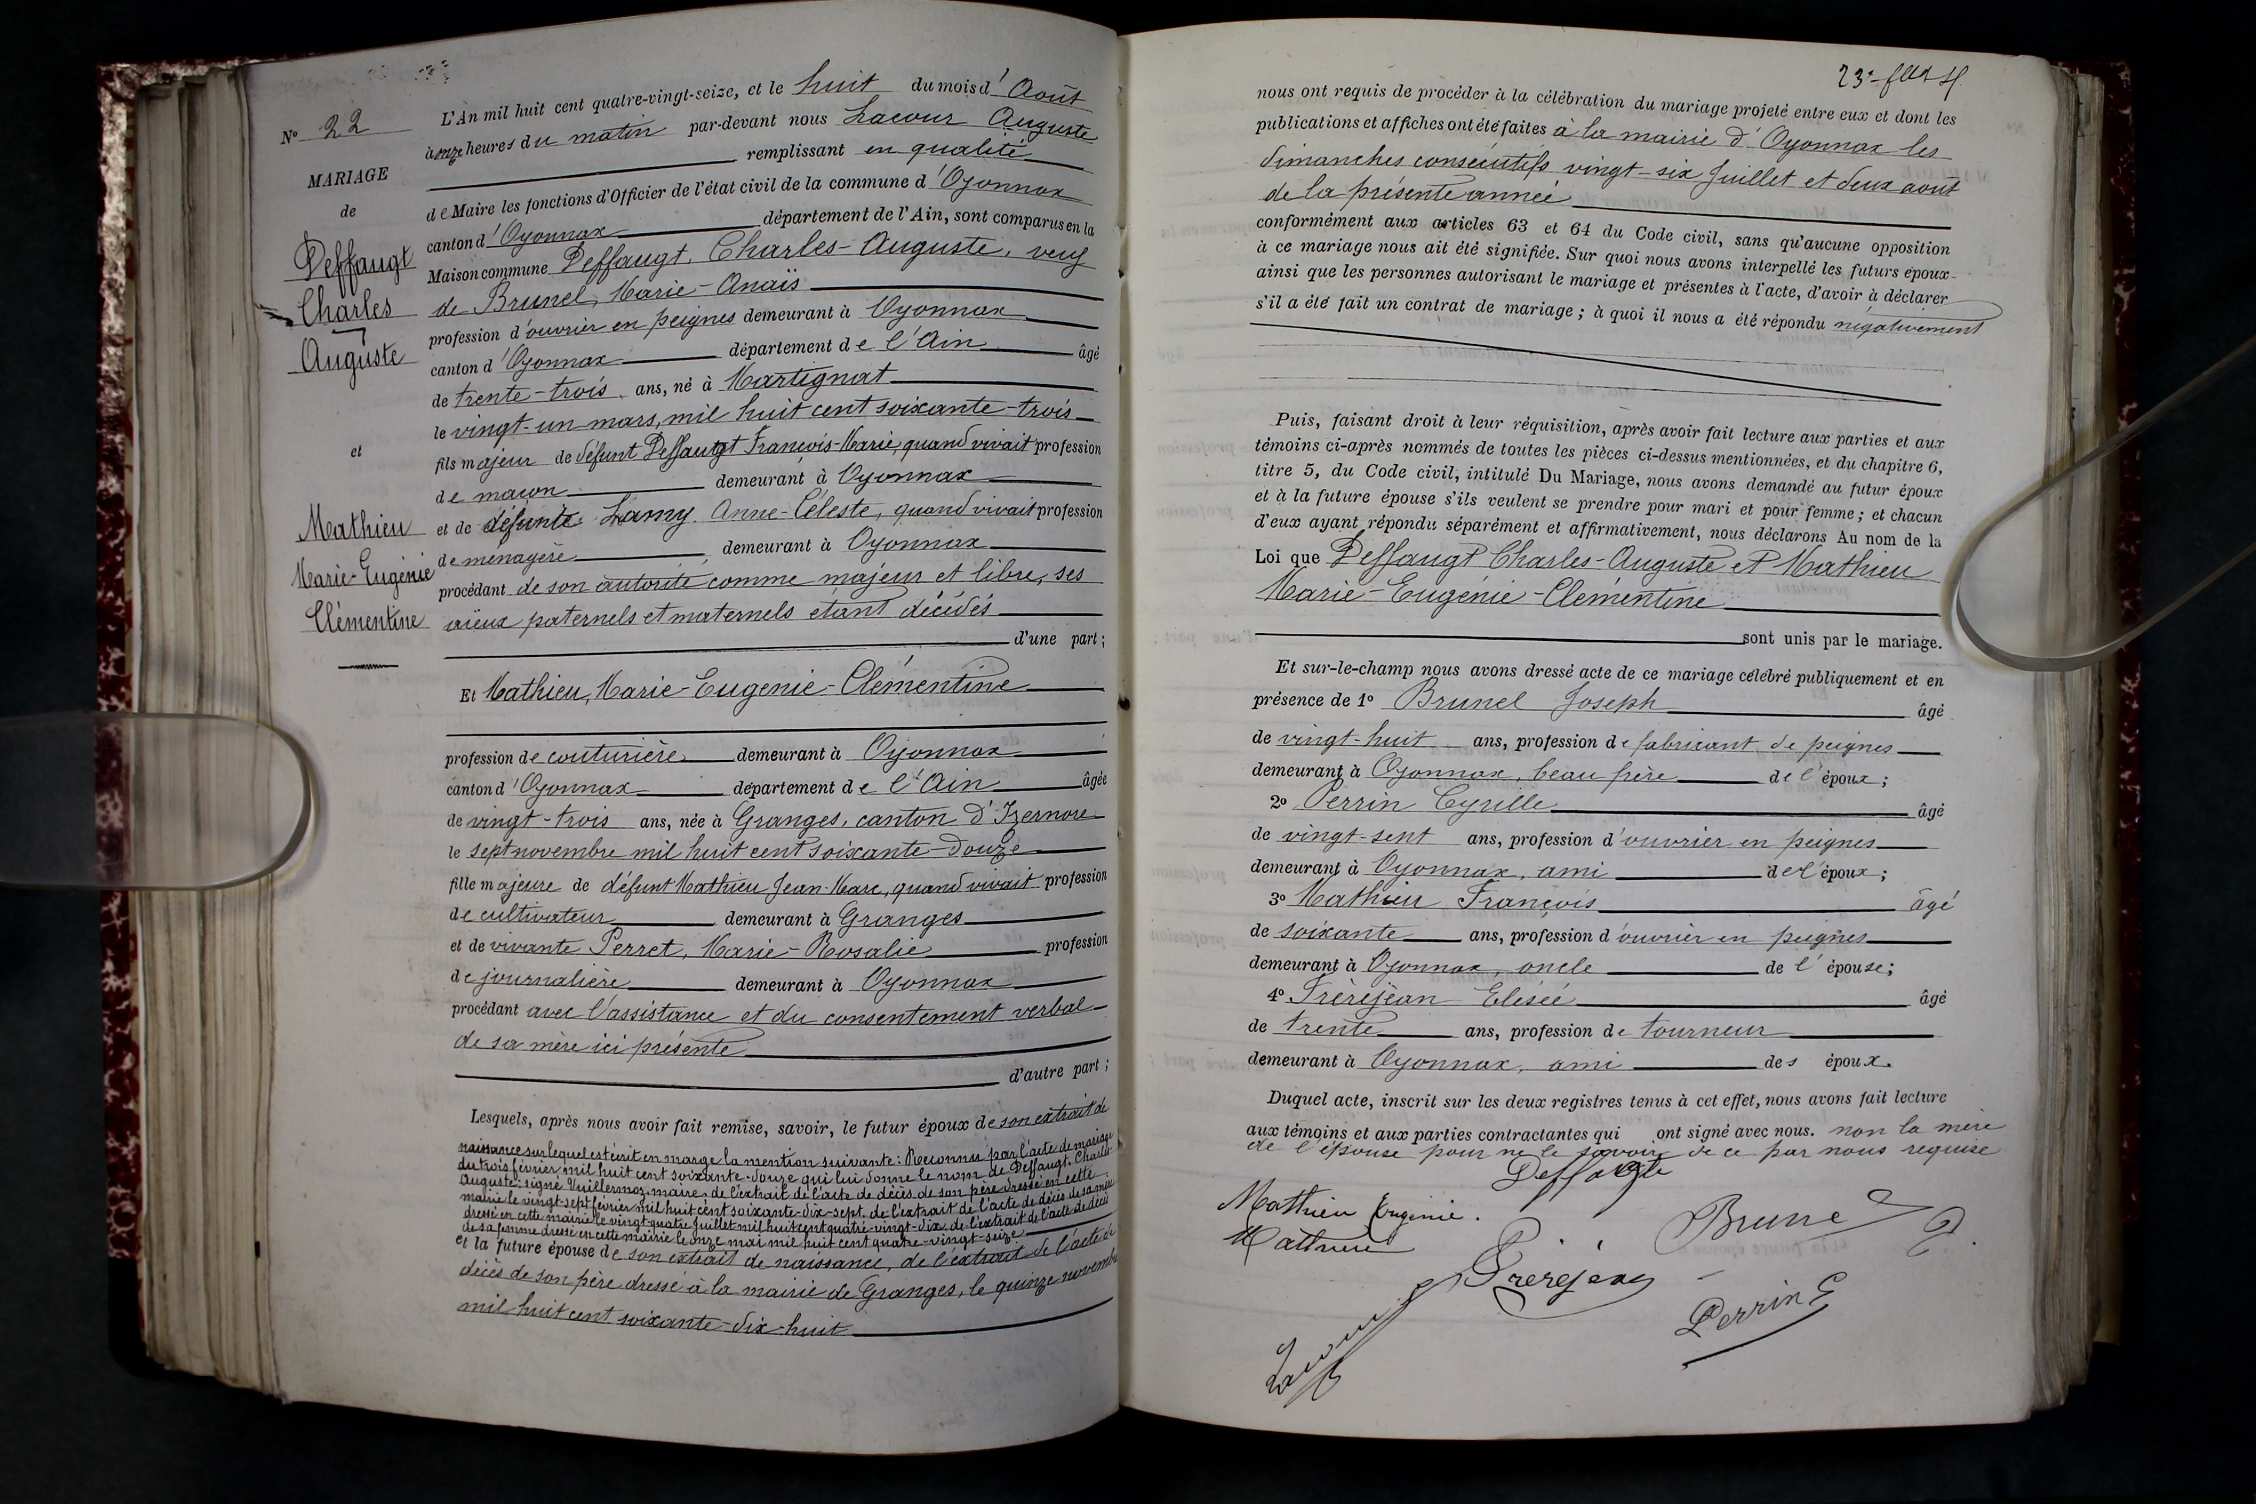 L'An mil huit cent quatre-vingt-seize, et le huit du mois d'Août
à onze heures du matin par-devant nous Lacour Auguste
remplissant en qualité
de Maire les fonctions d'Officier de l'état civil de la commune d'Oyonnax
canton d'Oyonnax département de l'Ain, sont comparus en la
Maison commune Deffaugt, Charles-Auguste, veuf
de Brunel, Marie-Anaïs
profession d'ouvrier en peignes demeurant à Oyonnax
canton d'Oyonnax département de l'Ain âgé
de trente-trois ans, né à Martignat
le vingt-un mars, mil huit cent soixante-trois
fils majeur de défunt Deffaugt François-Marie, quand vivait profession
de maçon demeurant à Oyonnax
et de défunte Lamy Anne-Céleste, quand vivait profession
de ménagère demeurant à Oyonnax
procédant de son autorité comme majeur et libre, ses
aïeux paternels et maternels étant décédés
d'une part;
Et Mathieu, Marie-Eugénie-Clémentine
profession de couturière demeurant à Oyonnax
canton d'Oyonnax département de l'Ain âgée
de vingt-trois ans, née à Granges, canton d'Izernore
le sept novembre mil huit cent soixante-douze
fille majeure de défunt Mathieu Jean-Marc, quand vivait profession
de cultivateur demeurant à Granges
et de vivante Perret, Marie-Rosalie profession
de journalière demeurant à Oyonnax
procédant avec l'assistance et du consentement verbal
de sa mère ici présente
d'autre part;
Lesquels, après nous avoir fait remise, savoir, le futur époux de son extrait de
naissance sur lequel est écrit en marge la mention suivante: Reconnu par l'acte de mariage
du trois février mil huit cent soixante-douze qui lui donne le nom de Deffaugt, Charles-
Auguste: signé Vuillermoz, maire, de l'extrait de l'acte de décès de son père dressé en cette
mairie le vingt-sept février mil huit cent soixante-dix-sept, de l'extrait de l'acte de décès de sa mère
dressé en cette mairie le vingt-quatre Juillet mil huit cent quatre-vingt-dix, de l'extrait de l'acte de décès
de sa femme dressé en cette mairie le onze mai mil huit cent quatre-vingt-seize
et la future épouse de son extrait de naissance, de l'extrait de l'acte de
décès de son père dressé à la mairie de Granges, le quinze novembre
mil huit cent soixante-dix-huit
N° 22
MARIAGE
de
Deffaugt
Charles
Auguste
et
Mathieu
Marie-Eugénie
Clémentine
nous ont requis de procéder à la célébration du mariage projeté entre eux et dont les
publications et affiches ont été faites à la mairie d'Oyonnax les
dimanches consécutifs vingt-six Juillet et deux août
de la présente année
conformément aux articles 63 et 64 du Code civil, sans qu'aucune opposition
à ce mariage nous ait été signifiée. Sur quoi nous avons interpellé les futurs époux
ainsi que les personnes autorisant le mariage et présentes à l'acte, d'avoir à déclarer
s'il a été fait un contrat de mariage; à quoi il nous a été répondu négativement
Puis, faisant droit à leur réquisition, après avoir fait lecture aux parties et aux
témoins ci-après nommés de toutes les pièces ci-dessus mentionnées, et du chapitre 6,
titre 5, du Code civil, intitulé Du Mariage, nous avons demandé au futur époux
et à la future épouse s'ils veulent se prendre pour mari et pour femme; et chacun
d'eux ayant répondu séparément et affirmativement, nous déclarons Au nom de la
Loi que Deffaugt Charles-Auguste et Mathieu
Marie-Eugénie-Clémentine
sont unis par le mariage.
Et sur-le-champ nous avons dressé acte de ce mariage célébré publiquement et en
présence de 1° Brunel Joseph âgé
de vingt-huit ans, profession de fabricant de peignes
demeurant à Oyonnax, beau frère de l'époux;
2° Perrin Cyrille âgé
de vingt-sept ans, profession d'ouvrier en peignes
demeurant à Oyonnax, ami de l'époux;
3° Mathieu François âgé
de soixante ans, profession d'ouvrier en peignes
demeurant à Oyonnax, oncle de l'épouse;
4° Frèrejean Elisée âgé
de trente ans, profession de tourneur
demeurant à Oyonnax, ami des époux.
Duquel acte, inscrit sur les deux registres tenus à cet effet, nous avons fait lecture
aux témoins et aux parties contractantes qui ont signé avec nous. non la mère
de l'épouse pour ne le savoir de ce par nous requise
Deffaugt
Mathieu Eugénie.
Brunel
Mathieu
Frèrejean
Perrin C
Lacour